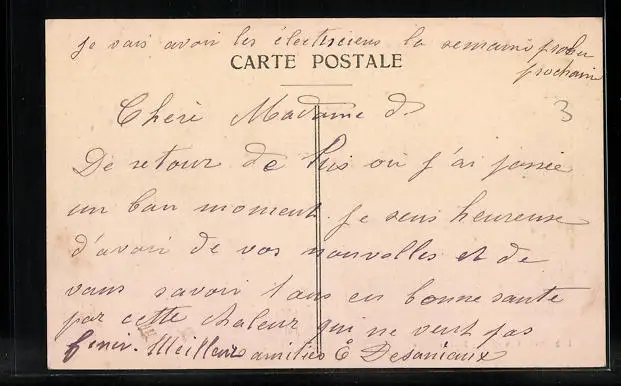 je vais avoir les électriciens la semaine
prochain
CARTE POSTALE
3
Chère Madame
De retour de où j'ai passée
un bon moment. Je suis heureuse
d'avoir de vos nouvelles et de
vous savoir tous en bonne sante
par cette chaleur qui ne veut pas
finir. Meilleurs amitiés E Desaniaux